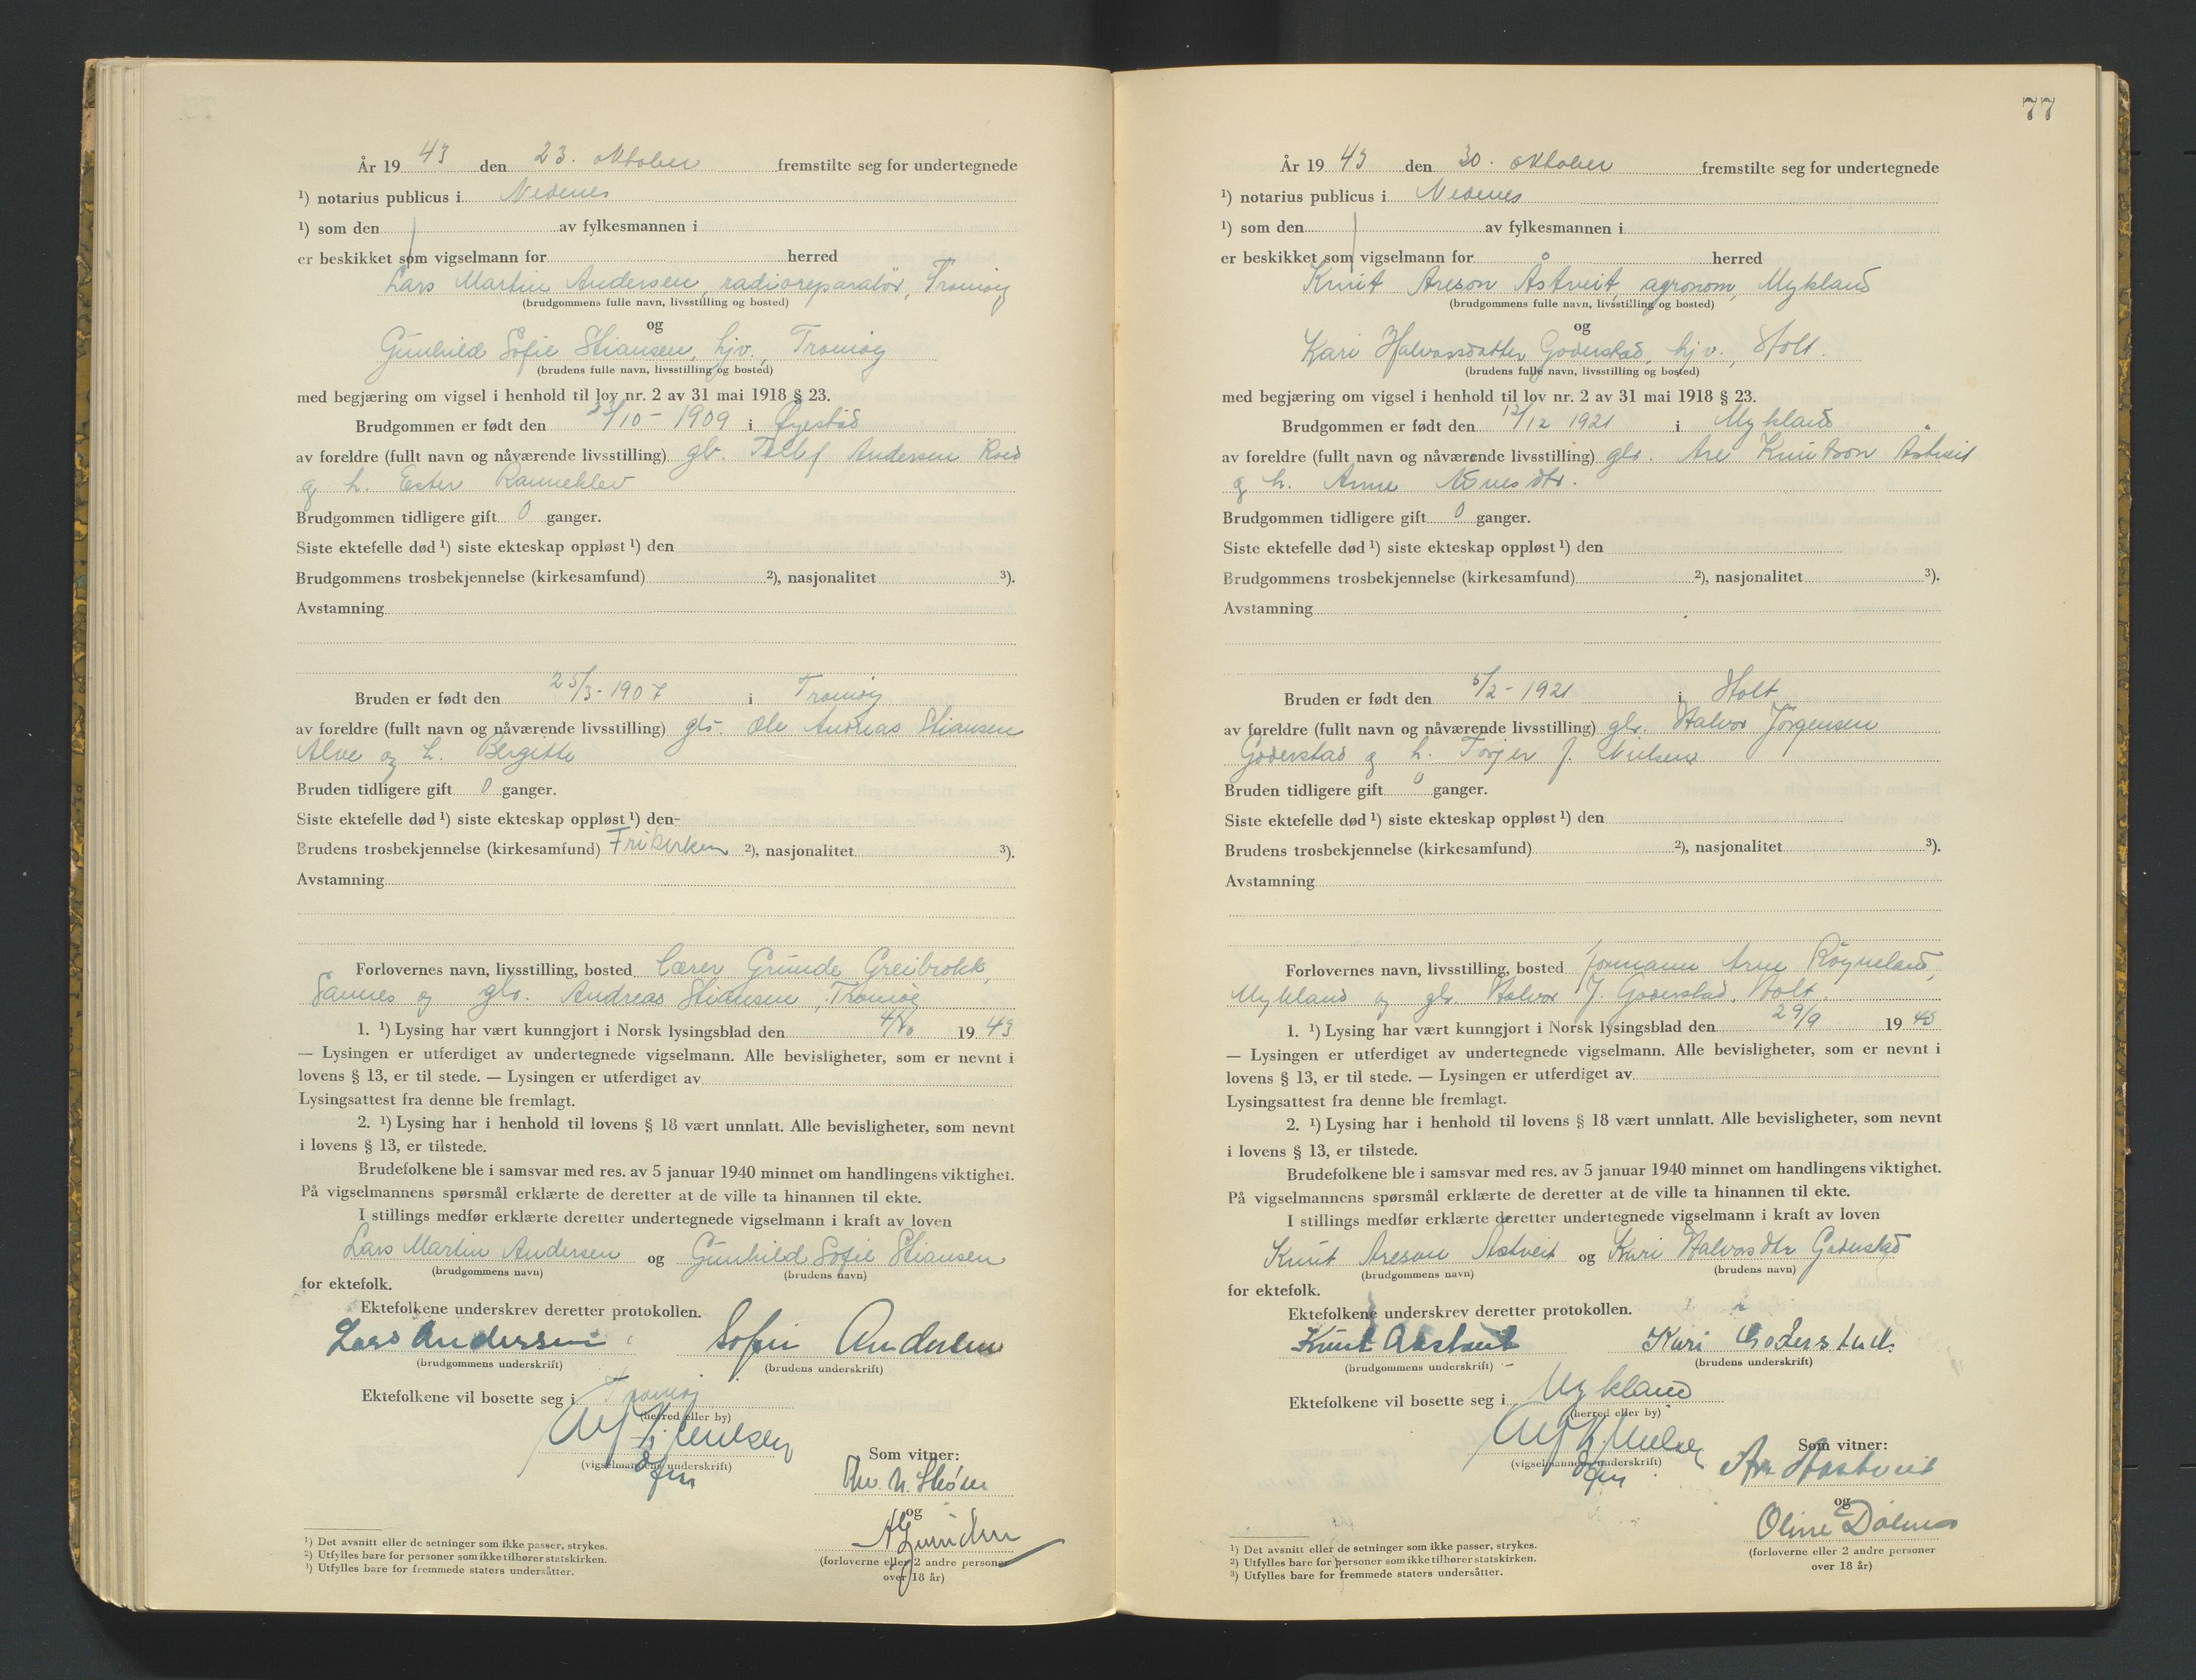 År 19 43 den 23. oktober fremstilte seg for undertegnede
¹) notarius publicus i Nedenes
¹) som den av fylkesmannen i
er beskikket som vigselmann for herred
Lars Martin Andersen, radioreparatör, Tromöy
(brudgommens fulle navn, livsstilling og bosted)
og
Gunhild Sofie Stiansen, hjv., Tromöy
(brudens fulle navn, livsstilling og bosted)
med begjæring om vigsel i henhold til lov nr. 2 av 31 mai 1918 § 23.
Brudgommen er født den /10 - 1909 i Øyestad
av foreldre (fullt navn og nåværende livsstilling) gbr. Tellef Andersen
g h. Ester Ranneklev
Brudgommen tidligere gift 0 ganger.
Siste ektefelle død ¹) siste ekteskap oppløst ¹) den
Brudgommens trosbekjennelse (kirkesamfund) ²), nasjonalitet ³).
Avstamning
Bruden er født den 25/3 - 1907 i Tromöy
av foreldre (fullt navn og nåværende livsstilling) gbr. Ole Andreas Stiansen
Alve og h. Bergitte
Bruden tidligere gift 0 ganger.
Siste ektefelle død ¹) siste ekteskap oppløst ¹) den-
Brudens trosbekjennelse (kirkesamfund) Frikirken ²), nasjonalitet ³).
Avstamning
Forlovernes navn, livsstilling, bosted lærer Grunde Greibrokk,
Sannes og gbr. Andreas Stiansen, Tromöy
1. ¹) Lysing har vært kunngjort i Norsk lysingsblad den 4/10 19 43
— Lysingen er utferdiget av undertegnede vigselmann. Alle bevisligheter, som er nevnt i
lovens § 13, er til stede. — Lysingen er utferdiget av
Lysingsattest fra denne ble fremlagt.
2. ¹) Lysing har i henhold til lovens § 18 vært unnlatt. Alle bevisligheter, som nevnt
i lovens § 13, er tilstede.
Brudefolkene ble i samsvar med res. av 5 januar 1940 minnet om handlingens viktighet.
På vigselmannens spørsmål erklærte de deretter at de ville ta hinannen til ekte.
I stillings medfør erklærte deretter undertegnede vigselmann i kraft av loven
Lars Martin Andersen og Gunhild Sofie Stiansen
(brudgommens navn) (brudens navn)
for ektefolk.
Ektefolkene underskrev deretter protokollen.
Lars Andersen Sofie Andersen
(brudgommens underskrift) (brudens underskrift)
Ektefolkene vil bosette seg i Tromöy
(herred eller by)
(vigselmannens underskrift)
Som vitner:
og
(forloverne eller 2 andre personer
over 18 år)
¹) Det avsnitt eller de setninger som ikke passer, strykes.
²) Utfylles bare for personer som ikke tilhører statskirken.
³) Utfylles bare for fremmede staters undersåtter.
77
År 19 43 den 30. oktober fremstilte seg for undertegnede
¹) notarius publicus i Nedenes
¹) som den av fylkesmannen i
er beskikket som vigselmann for herred
Knut Areson Åstveit, agronom, Mykland
(brudgommens fulle navn, livsstilling og bosted)
og
Kari Halvorsdatter Goderstad, hjv., Holt.
(brudens fulle navn, livsstilling og bosted)
med begjæring om vigsel i henhold til lov nr. 2 av 31 mai 1918 § 23.
Brudgommen er født den 12/12 1921 i Mykland
av foreldre (fullt navn og nåværende livsstilling) gbr. Are Knutson Åstveit
g h. Anne
Brudgommen tidligere gift 0 ganger.
Siste ektefelle død ¹) siste ekteskap oppløst ¹) den
Brudgommens trosbekjennelse (kirkesamfund) ²), nasjonalitet ³).
Avstamning
Bruden er født den 5/2 - 1921 i Holt
av foreldre (fullt navn og nåværende livsstilling) gbr. Halvor Jörgensen
Goderstad g h. Torjer J. Nielsen
Bruden tidligere gift 0 ganger.
Siste ektefelle død ¹) siste ekteskap oppløst ¹) den
Brudens trosbekjennelse (kirkesamfund) ²), nasjonalitet ³).
Avstamning
Forlovernes navn, livsstilling, bosted formann Arne Röyneland,
Mykland og gbr. Halvor J. Goderstad, Holt.
1. ¹) Lysing har vært kunngjort i Norsk lysingsblad den 29/9 19 43
— Lysingen er utferdiget av undertegnede vigselmann. Alle bevisligheter, som er nevnt i
lovens § 13, er til stede. — Lysingen er utferdiget av
Lysingsattest fra denne ble fremlagt.
2. ¹) Lysing har i henhold til lovens § 18 vært unnlatt. Alle bevisligheter, som nevnt
i lovens § 13, er tilstede.
Brudefolkene ble i samsvar med res. av 5 januar 1940 minnet om handlingens viktighet.
På vigselmannens spørsmål erklærte de deretter at de ville ta hinannen til ekte.
I stillings medfør erklærte deretter undertegnede vigselmann i kraft av loven
Knut Areson Åstveit og Kari Halvorsdtr Goderstad
(brudgommens navn) (brudens navn)
for ektefolk.
Ektefolkene underskrev deretter protokollen.
Knut Aastveit Kari Goderstad.
(brudgommens underskrift) (brudens underskrift)
Ektefolkene vil bosette seg i Mykland
(herred eller by)
(vigselmannens underskrift)
Som vitner:
Are Aastveit
og
Oline Dølmo
(forloverne eller 2 andre personer
over 18 år)
¹) Det avsnitt eller de setninger som ikke passer, strykes.
²) Utfylles bare for personer som ikke tilhører statskirken.
³) Utfylles bare for fremmede staters undersåtter.